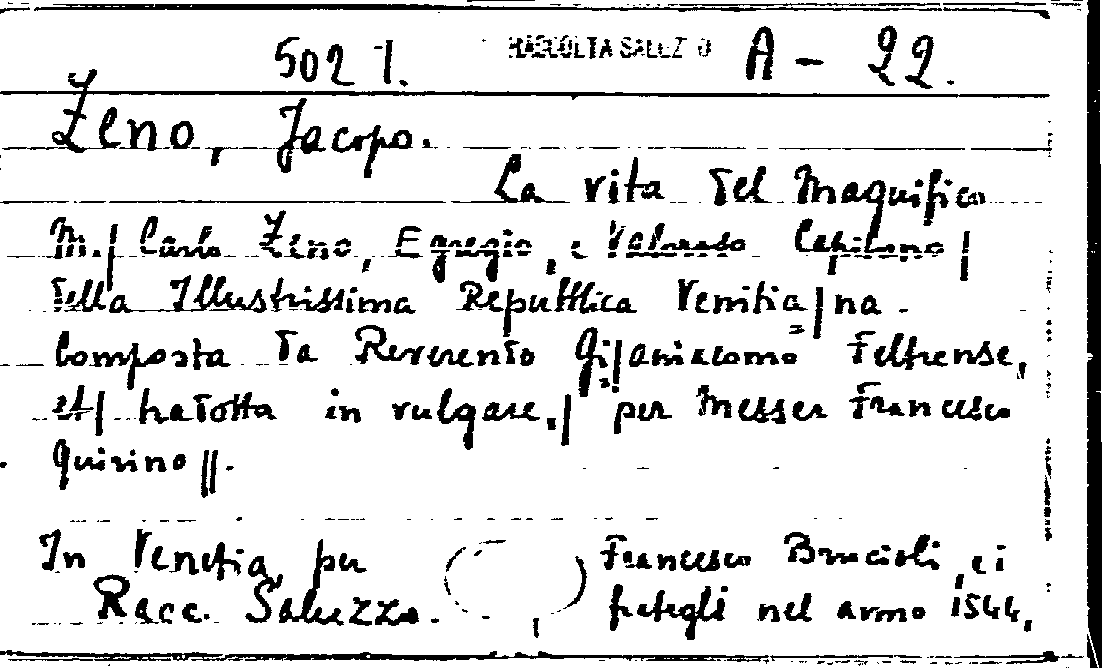 5021. RACCOLTA SALUZZO A - 22.
Zeno, Jacopo.
La vita del Magnifico
M./ Carlo Zeno, Egregio, e Valoroso Capitano/
della Illustrissima Repubblica Venitia/na.
Composta da Reverendo Gi/aniacomo Feltrense,
et/ tradotta in vulgare./ per Messer Francesco
Quirino//.
In Venetia, per Francesco Brucioli, e i
Racc. Saluzzo. frategli nel anno 1544,